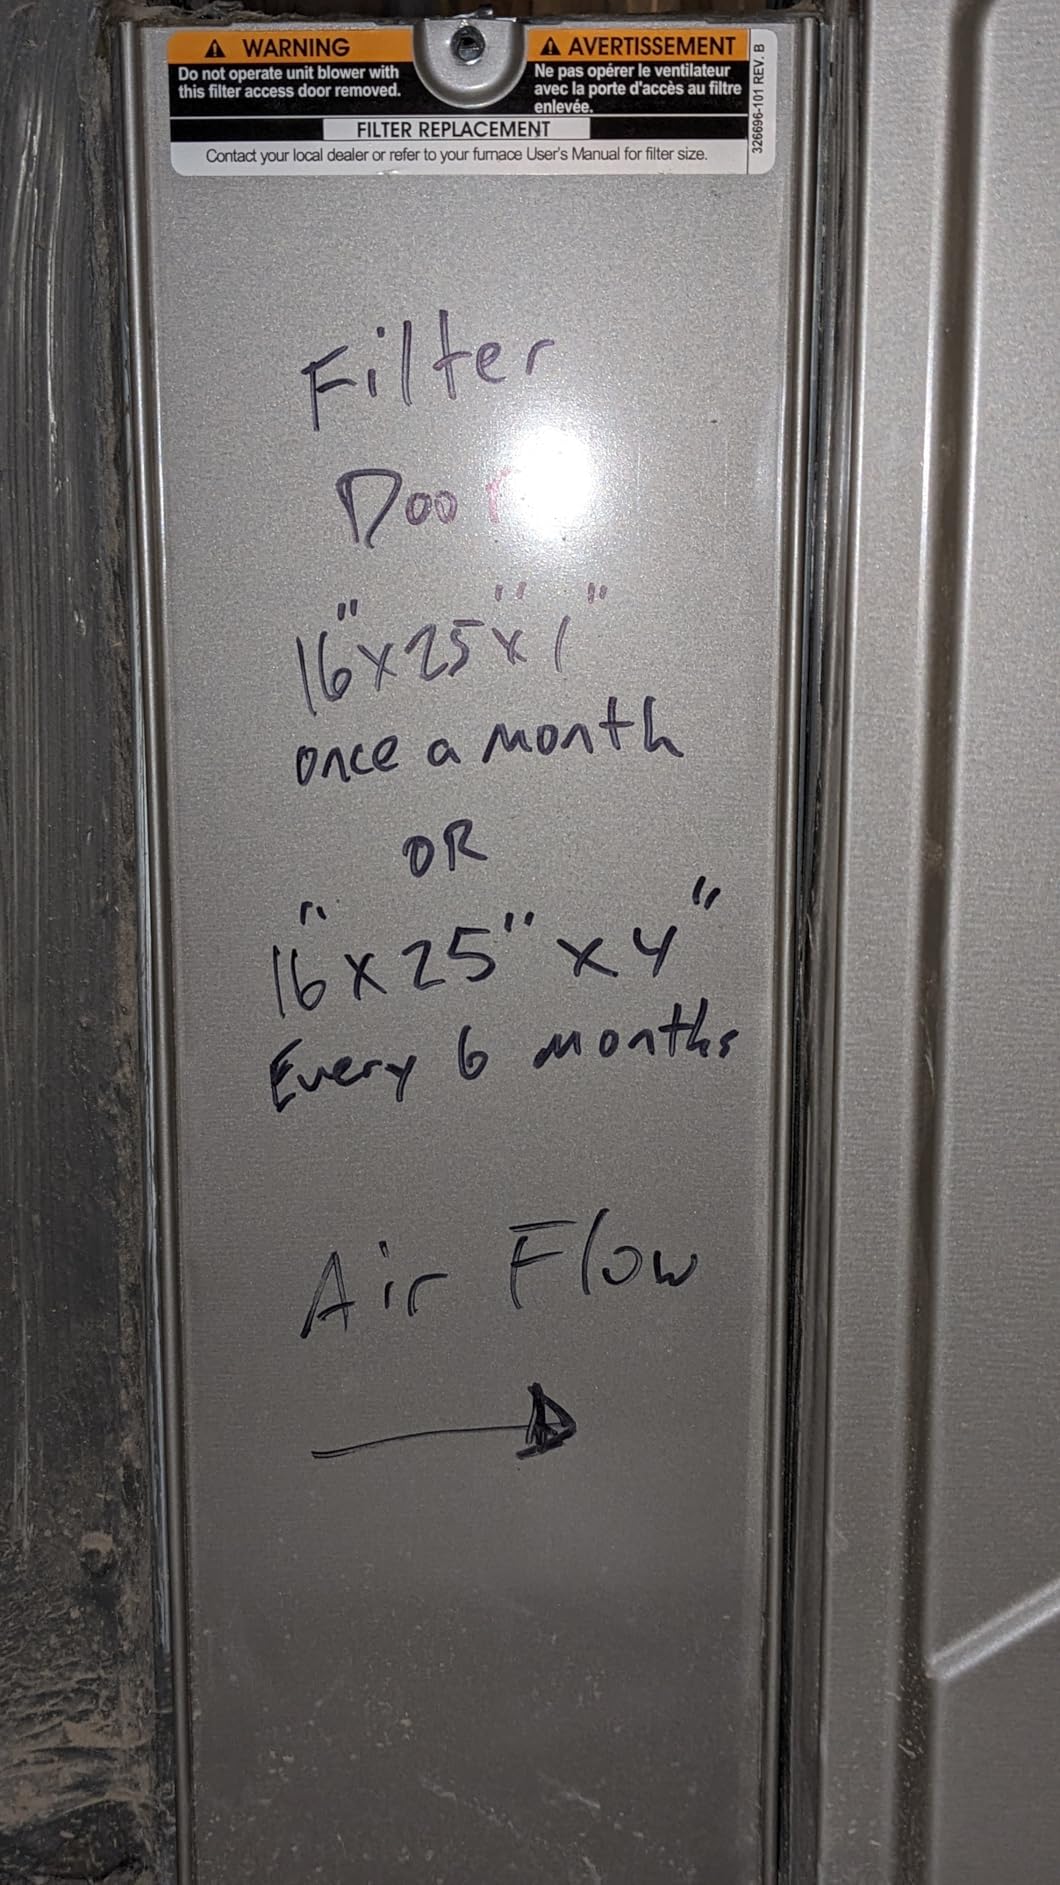 WARNING
Do not operate unit blower with
this filter access door removed.
AVERTISSEMENT
Ne pas opérer le ventilateur
avec la porte d'accès au filtre
enlevée.
326696-101 REV. B
FILTER REPLACEMENT
Contact your local dealer or refer to your furnace User's Manual for filter size.
Filter
Door
16"x25"x1"
once a month
OR
16"x25"x4"
Every 6 months
Air Flow